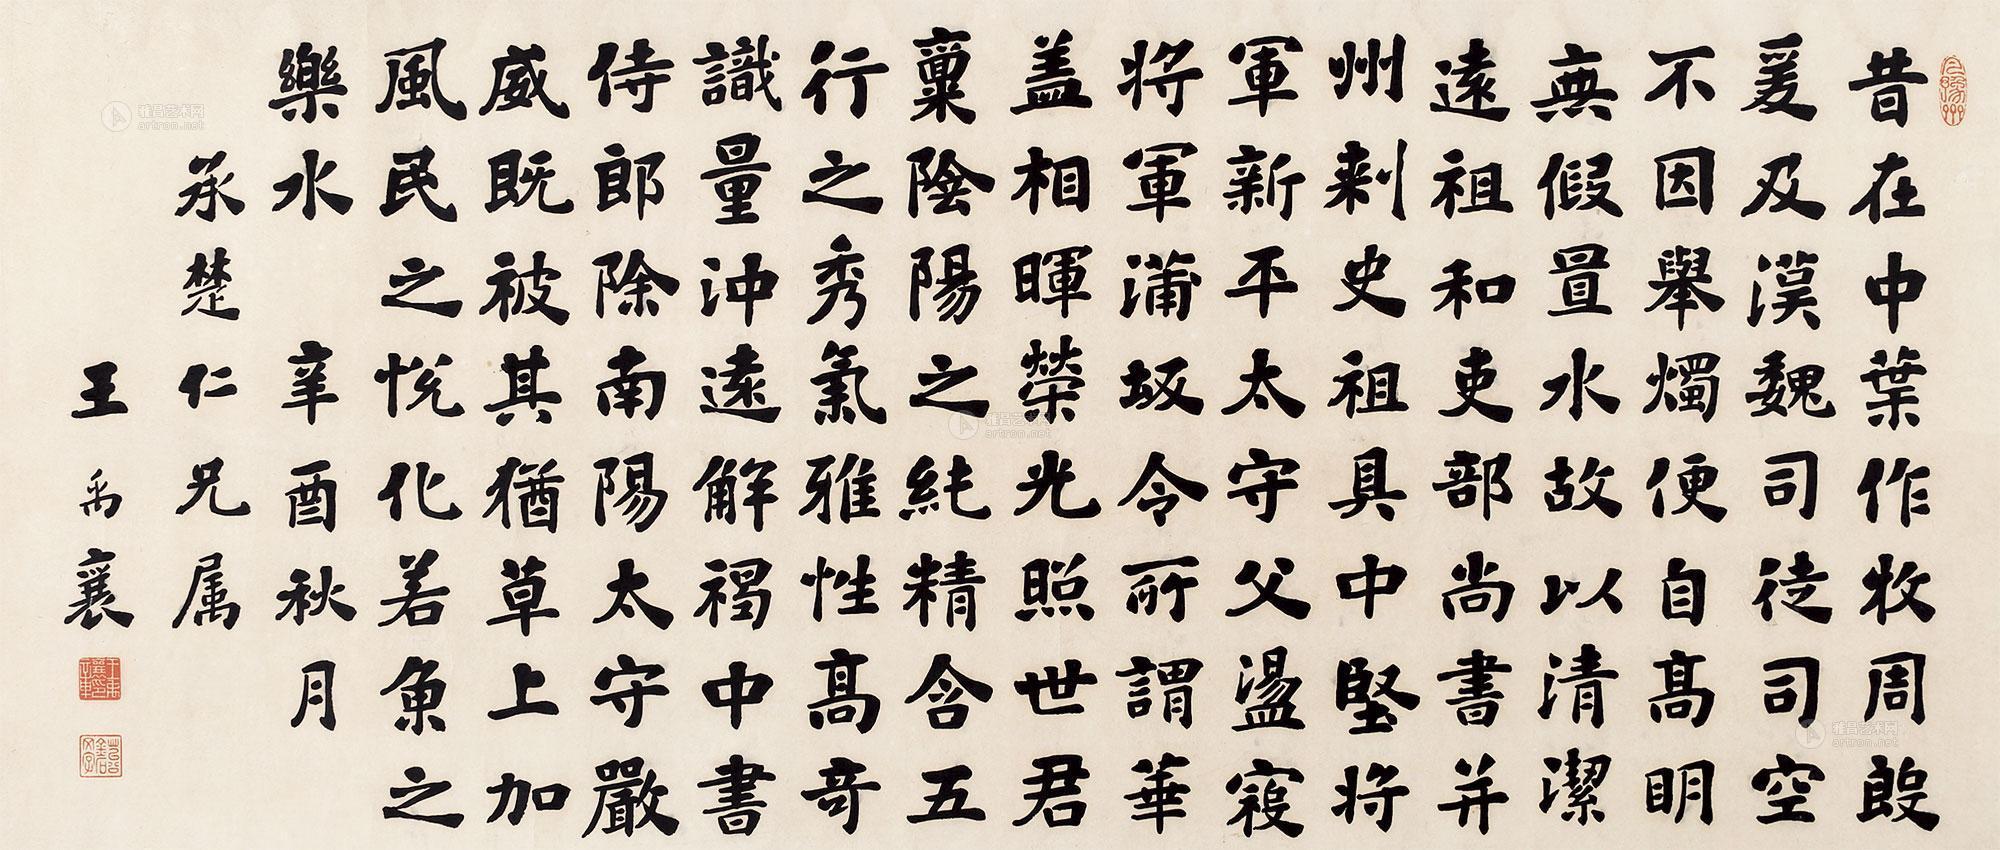 昔在中葉作牧周殷
爰及漢魏司徒司空
不因舉燭便自高明
無假置水故以清潔
遠祖和吏部尚書并
州刺史祖具中堅將
軍新平太守父盪寇
將軍蒲坂令所謂華
蓋相暉榮光照世君
稟陰陽之純精含五
行之秀氣雅性高奇
識量沖遠解褐中書
侍郎除南陽太守嚴
威既被其猶草上加
風民之悅化若魚之
樂水 辛酉秋月
承楚仁兄属
王禹襄
雅昌艺术网
artron.net
雅昌艺术网
artron.net
雅昌艺术网
artron.net